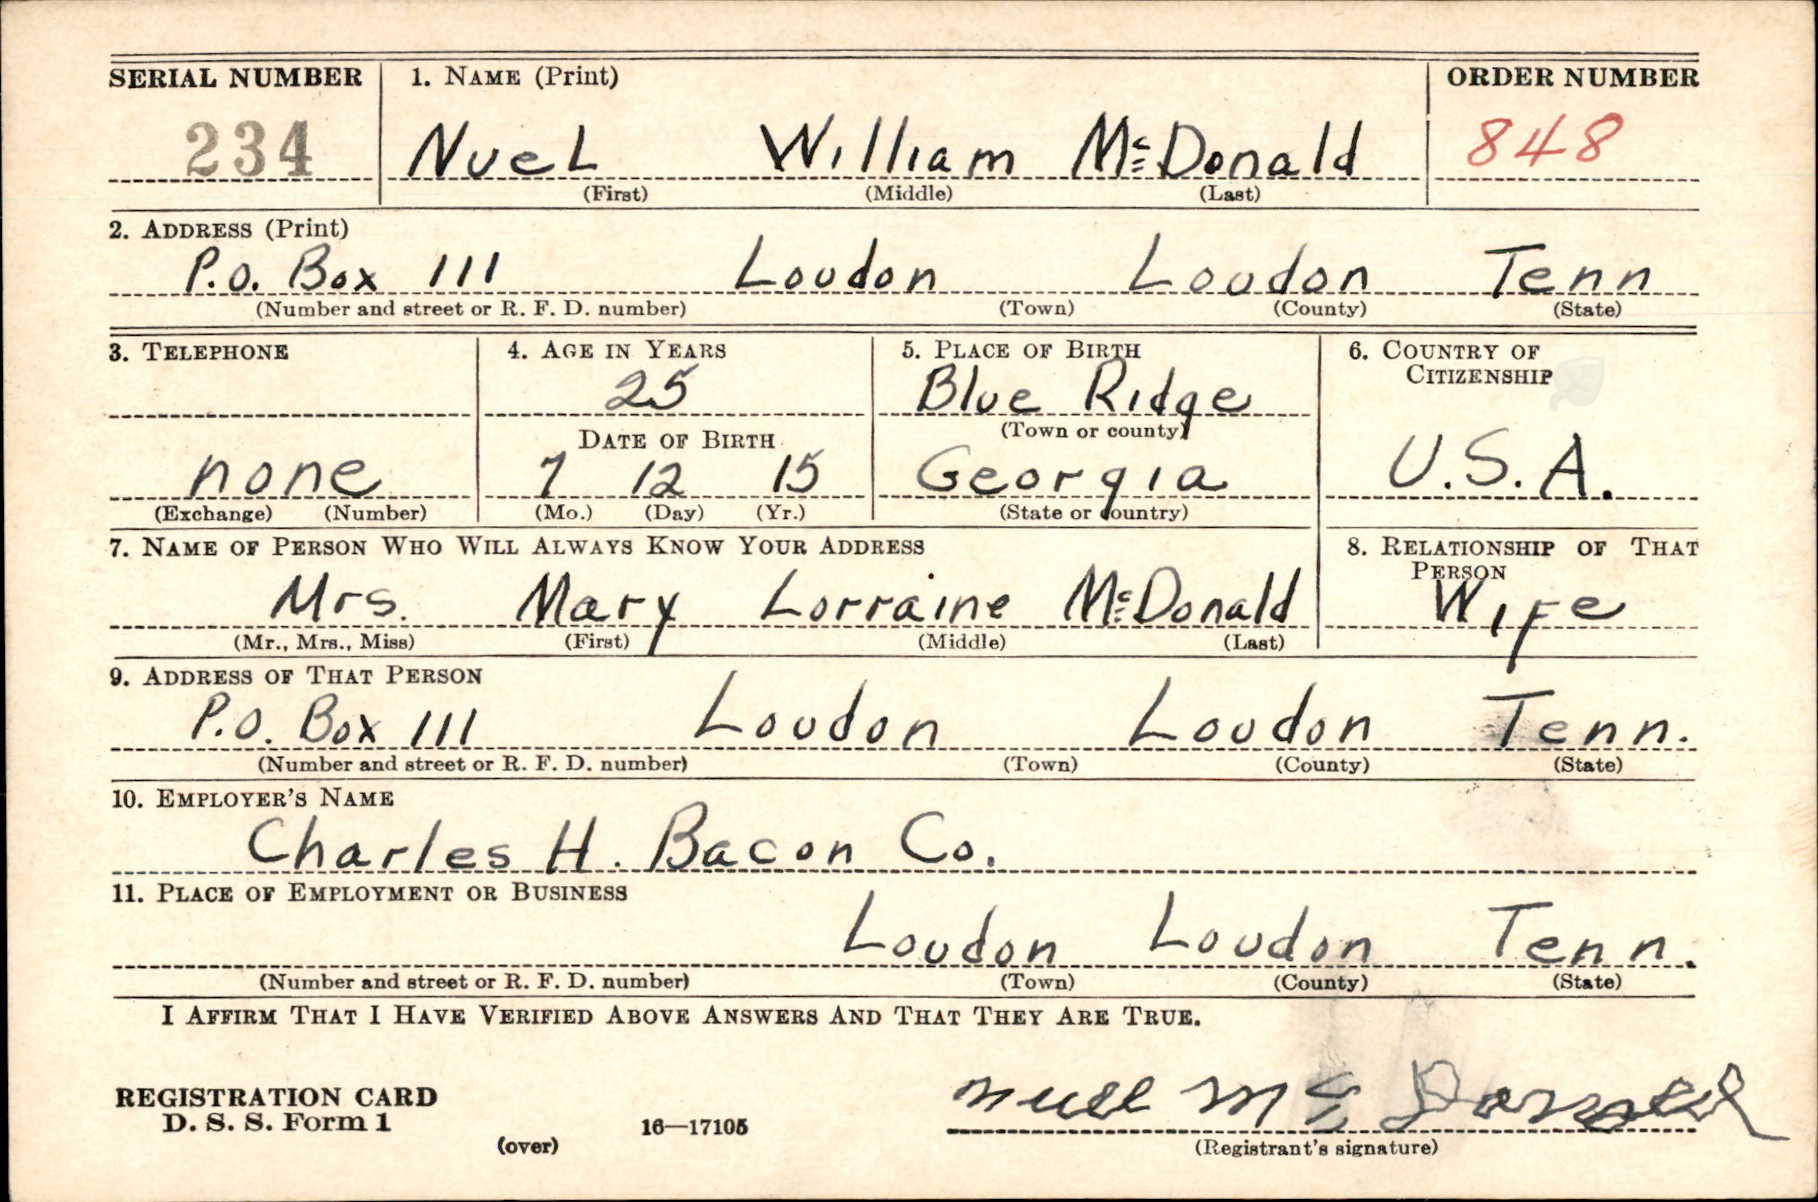 SERIAL NUMBER 1. NAME (Print) ORDER NUMBER
234 Nuel William McDonald 848
(First) (Middle) (Last)
2. ADDRESS (Print)
P.O. Box 111 Loudon Loudon Tenn
(Number and street or R. F. D. number) (Town) (County) (State)
3. TELEPHONE 4. AGE IN YEARS 5. PLACE OF BIRTH 6. COUNTRY OF
CITIZENSHIP
25 Blue Ridge
DATE OF BIRTH (Town or county)
none 7 12 15 Georgia U.S.A.
(Exchange) (Number) (Mo.) (Day) (Yr.) (State or country)
7. NAME OF PERSON WHO WILL ALWAYS KNOW YOUR ADDRESS 8. RELATIONSHIP OF THAT
PERSON
Mrs. Mary Lorraine McDonald Wife
(Mr., Mrs., Miss) (First) (Middle) (Last)
9. ADDRESS OF THAT PERSON
P.O. Box 111 Loudon Loudon Tenn.
(Number and street or R. F. D. number) (Town) (County) (State)
10. EMPLOYER'S NAME
Charles H. Bacon Co.
11. PLACE OF EMPLOYMENT OR BUSINESS
Loudon Loudon Tenn.
(Number and street or R. F. D. number) (Town) (County) (State)
I AFFIRM THAT I HAVE VERIFIED ABOVE ANSWERS AND THAT THEY ARE TRUE.
REGISTRATION CARD
D. S. S. Form 1 Nuel McDonald
(over) 16—17105 (Registrant's signature)